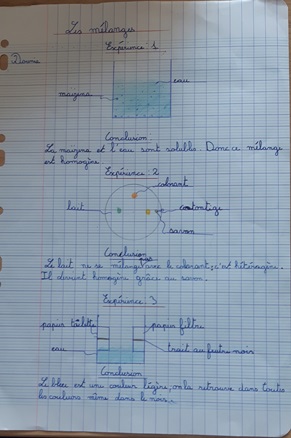 Les mélanges
Expérience 1
eau
maizena
Conclusion.
La maizena et l'eau sont soluble. Donc ce mélange
est homogène.
Expérience 2
colorant
lait
savon
Conclusion
pas
Le lait ne se mélange avec le colorant, c'est hétérogène.
Il devient homogène grâce au savon.
Expérience 3
papier toilette
papier filtre
eau
trait au feutre noir
Conclusion
Le bleu est une couleur légère, on la retrouve dans toutes
les couleurs même dans le noir.